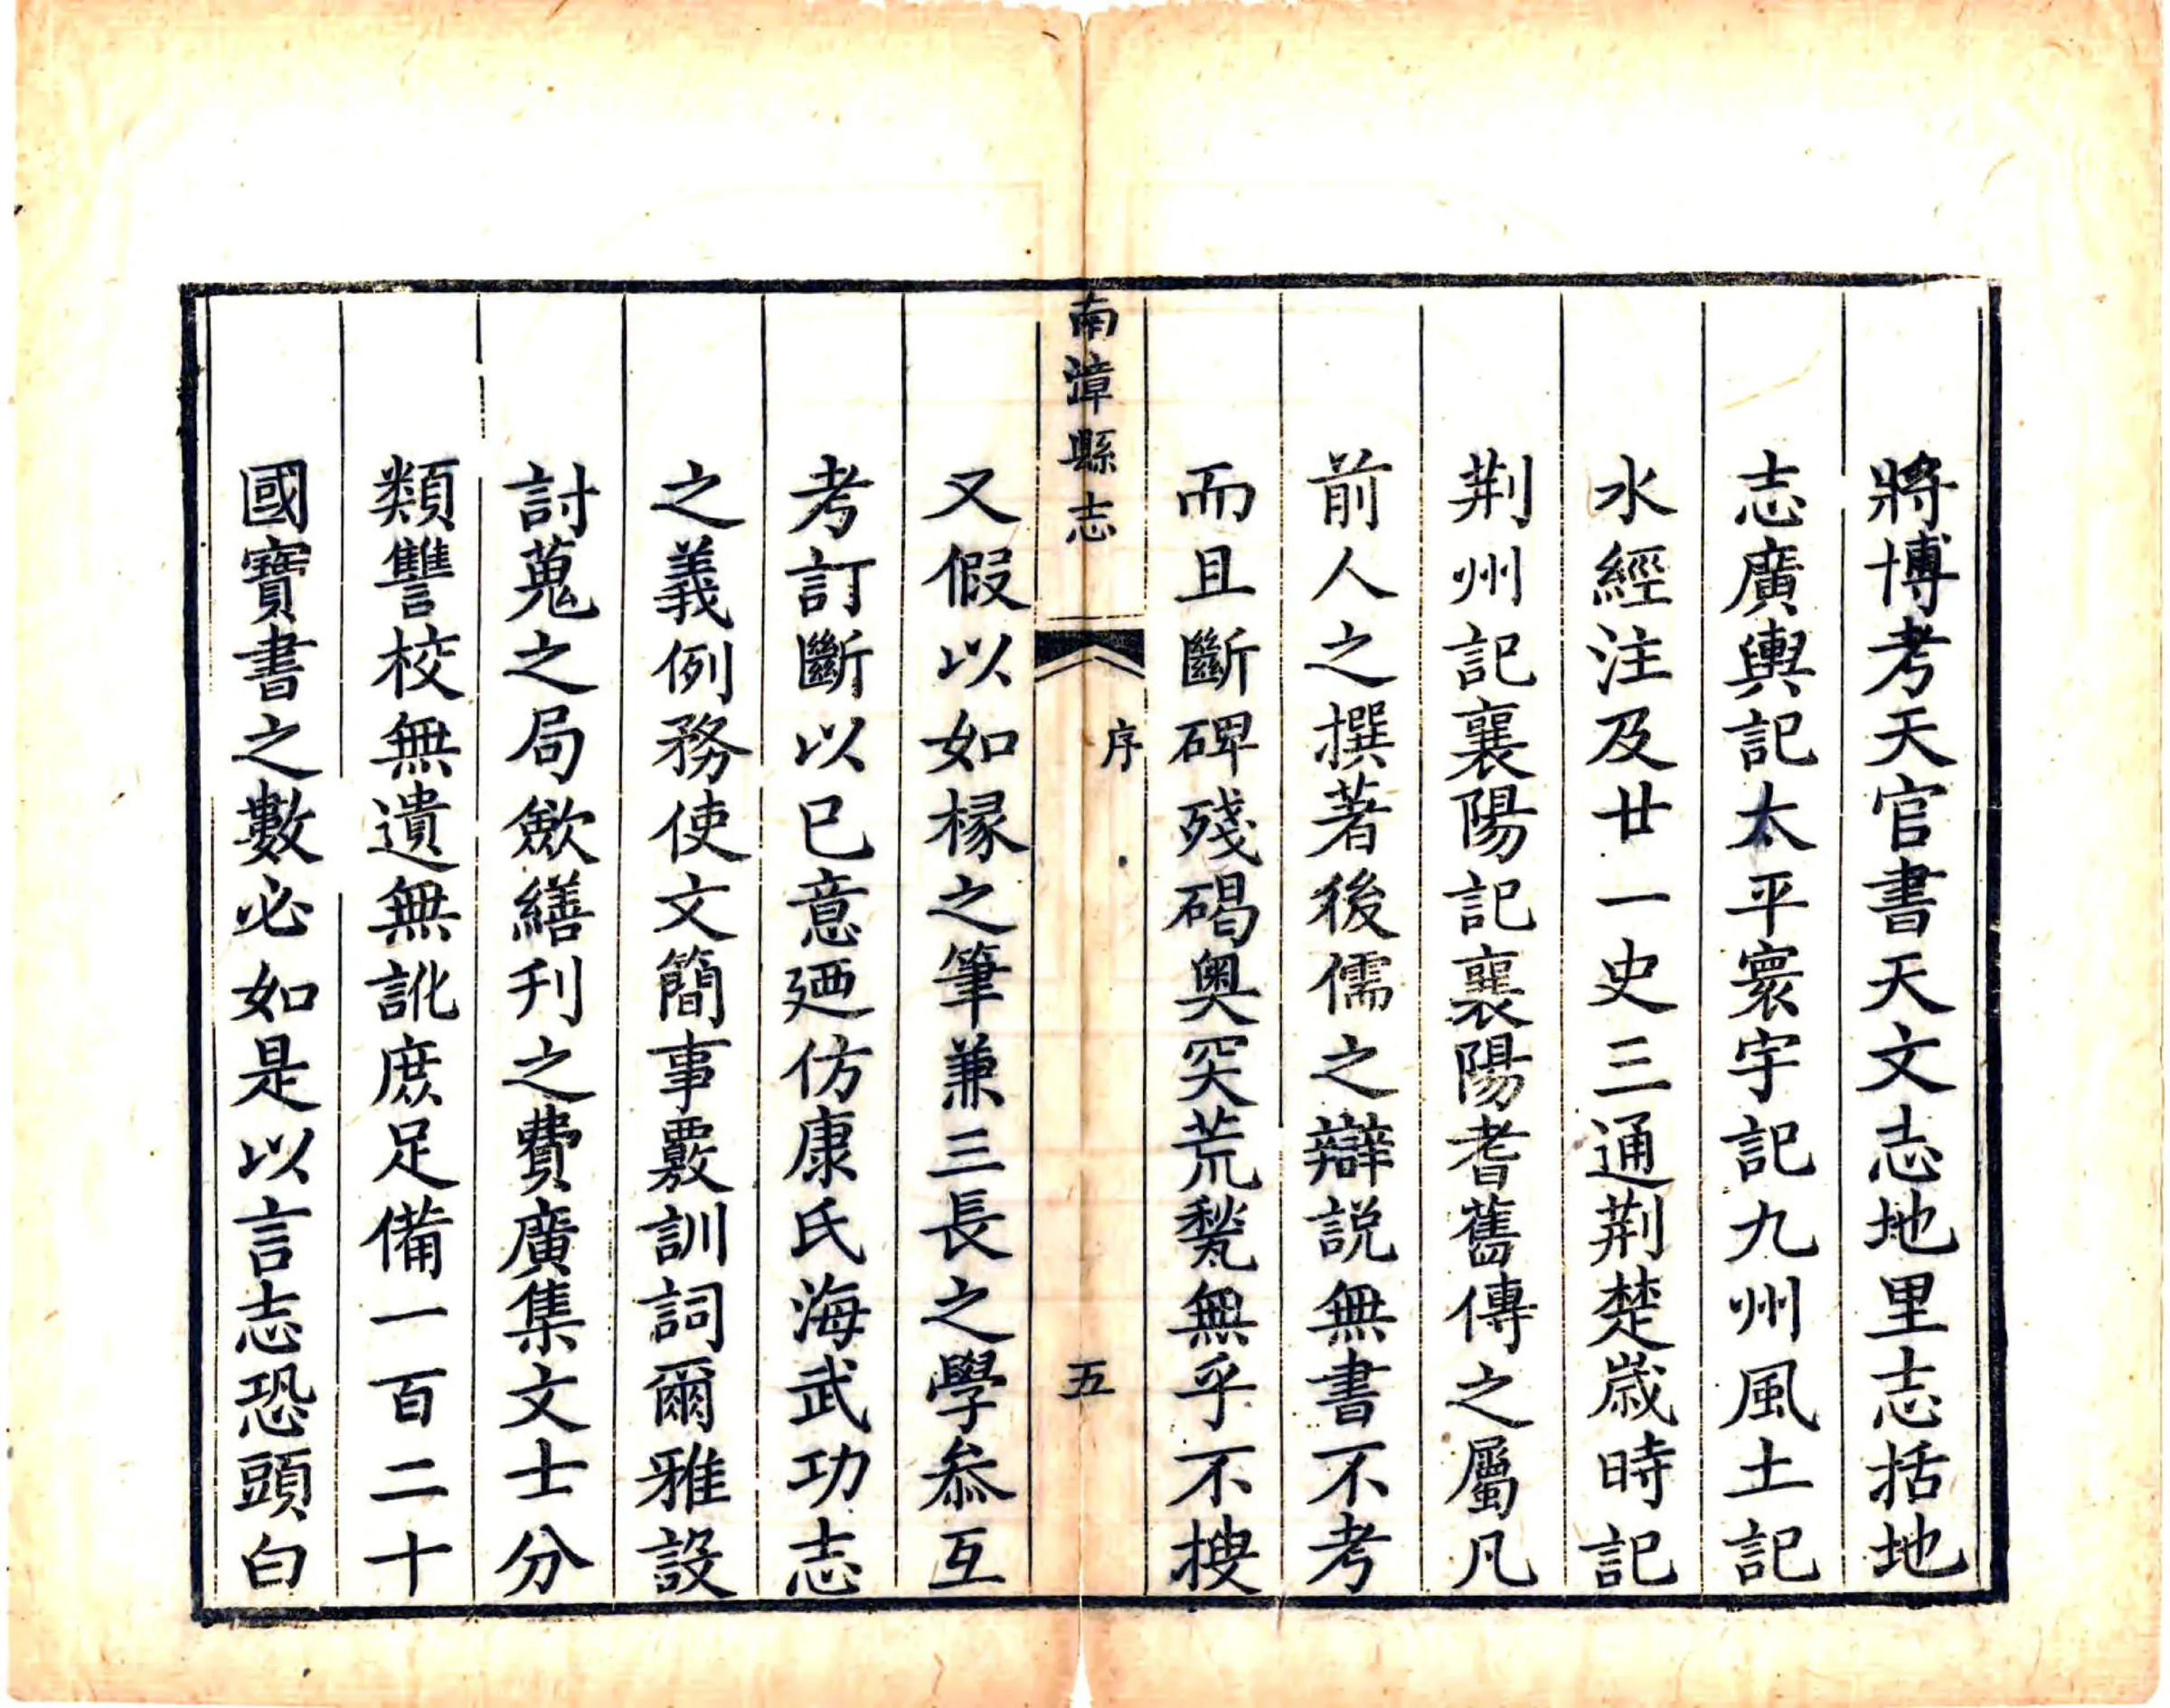 將博考天官書天文志地里志括地
志廣輿記太平寰宇記九州風土記
水經注及廿一史三通荆楚歲時記
荆州記襄陽記襄陽耆舊傳之屬凡
前人之撰著後儒之辯説無書不考
而且斷碑殘碣奥突荒甃無乎不搜
南漳縣志
序
五
又假以如椽之筆兼三長之學叅互
考訂斷以已意廼仿康氏海武功志
之義例務使文簡事覈訓詞爾雅設
討蒐之局歛繕刋之費廣集文士分
類讐校無遺無訛庶足備一百二十
國寶書之數必如是以言志恐頭白